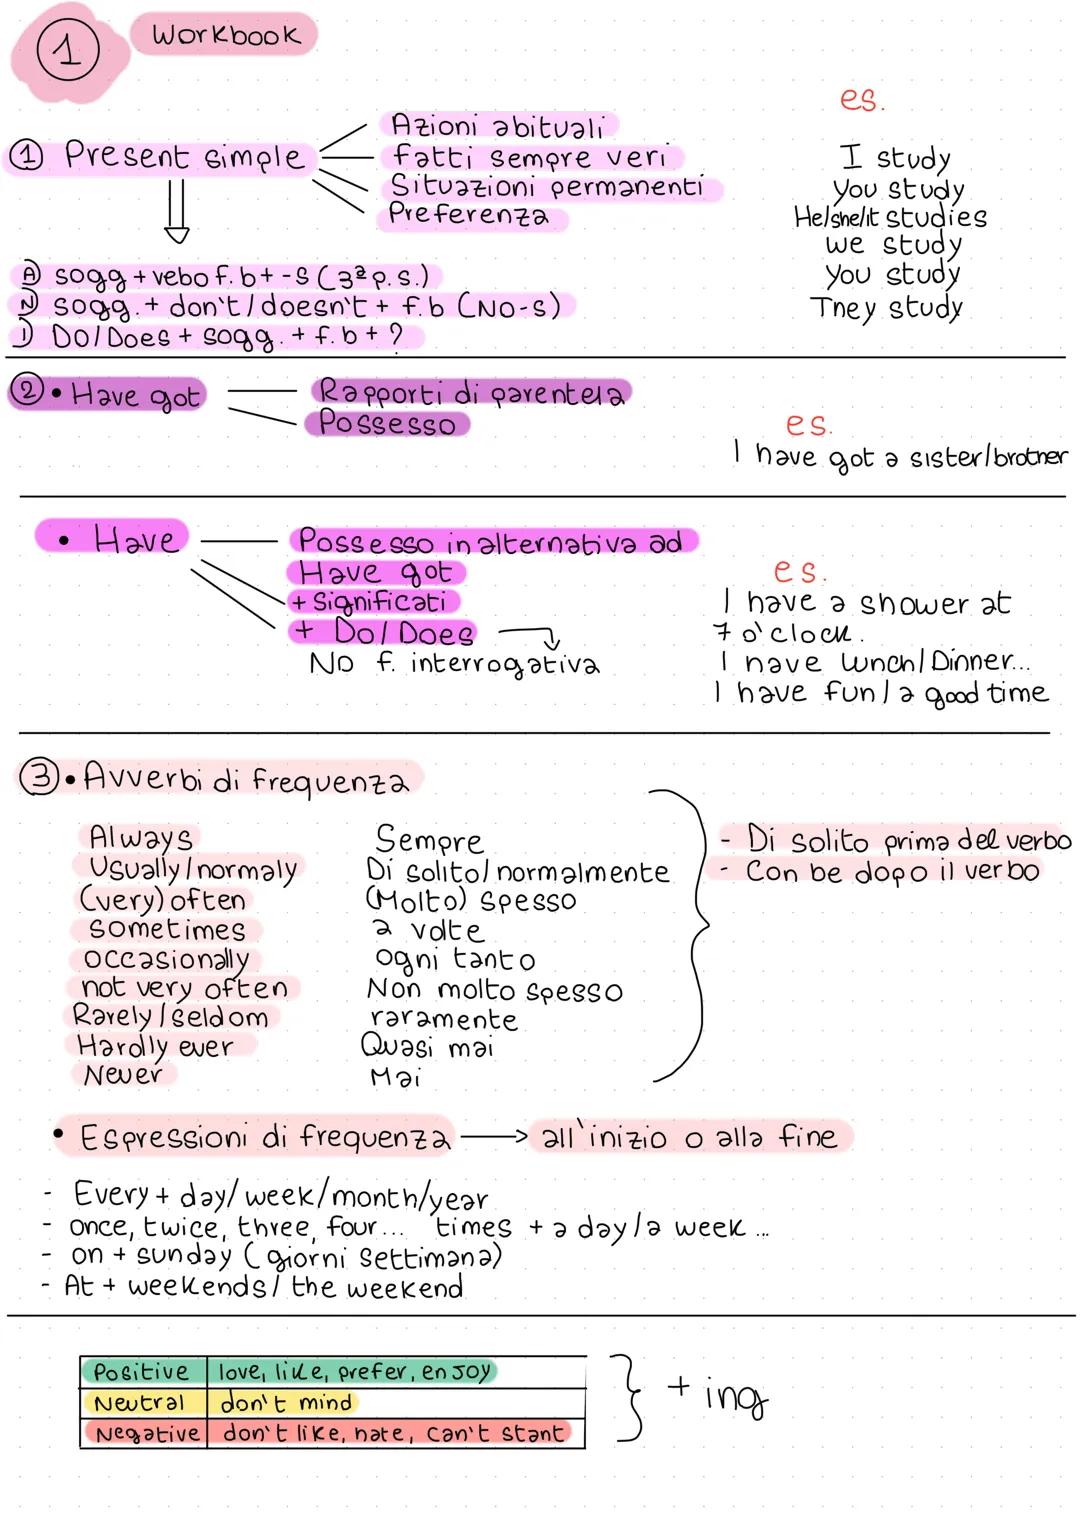 1 Workbook
① Present simple
Azioni abituali
fatti sempre veri
Situazioni permanenti
Preferenza
es.
I study
You study
He/she/it studies
we study
You study
They study
A sogg + vebo f. b + -s (3ª p. s.)
N sogg. + don't / doesn't + f.b (NO-s)
I DO/Does + sogg. + f. b + ?
② • Have got
Rapporti di parentela
Possesso
es.
I have got a sister/brother
• Have
Possesso in alternativa ad
Have got
+ Significati
+ Do/Does
No f. interrogativa
es.
I have a shower at
7 o'clock.
I have lunch/Dinner...
I have fun / a good time
③ • Avverbi di frequenza
Always Sempre
Usually/normaly Di solito/normalmente
(very) often (Molto) spesso
sometimes a volte
occasionally ogni tanto
not very often Non molto spesso
Rarely/seldom raramente
Hardly ever Quasi mai
Never Mai
- Di solito prima del verbo
- Con be dopo il verbo
• Espressioni di frequenza → all'inizio o alla fine
- Every + day/week/month/year
- once, twice, three, four... times + a day/a week...
- on + sunday (giorni settimana)
- At + weekends/ the weekend
Positive love, like, prefer, enjoy
Neutral don't mind
Negative don't like, hate, can't stant
+ ing